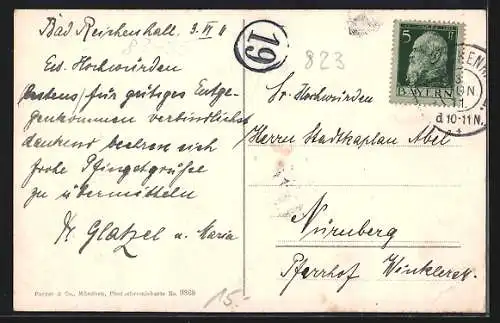 Bad Reichenhall. 3. VI 11
Ew. Hochwürden
bestens für gütiges Entge-
genkommen verbindlichst
dankend beehren sich
frohe Pfingstgrüße
zu übermitteln
Dr Glatzel u. Maria
Purger & Co., München, Photochromiekarte No. 9868
15.-
19
823
5 Pf
BAYERN
d 10-11 N.
Sr. Hochwürden
Herrn Stadtkaplan Abel
Nürnberg
Pfarrhof